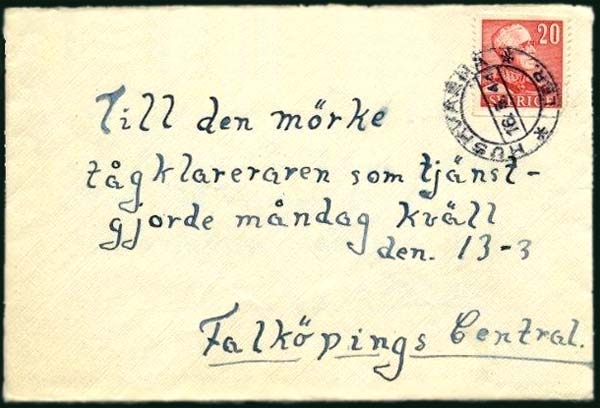 20
SVERIGE
HUSKVARNA
16. 3. 44
Till den mörke
tågklareraren som tjänst-
gjorde måndag kväll
den. 13-3
Falköpings Central.